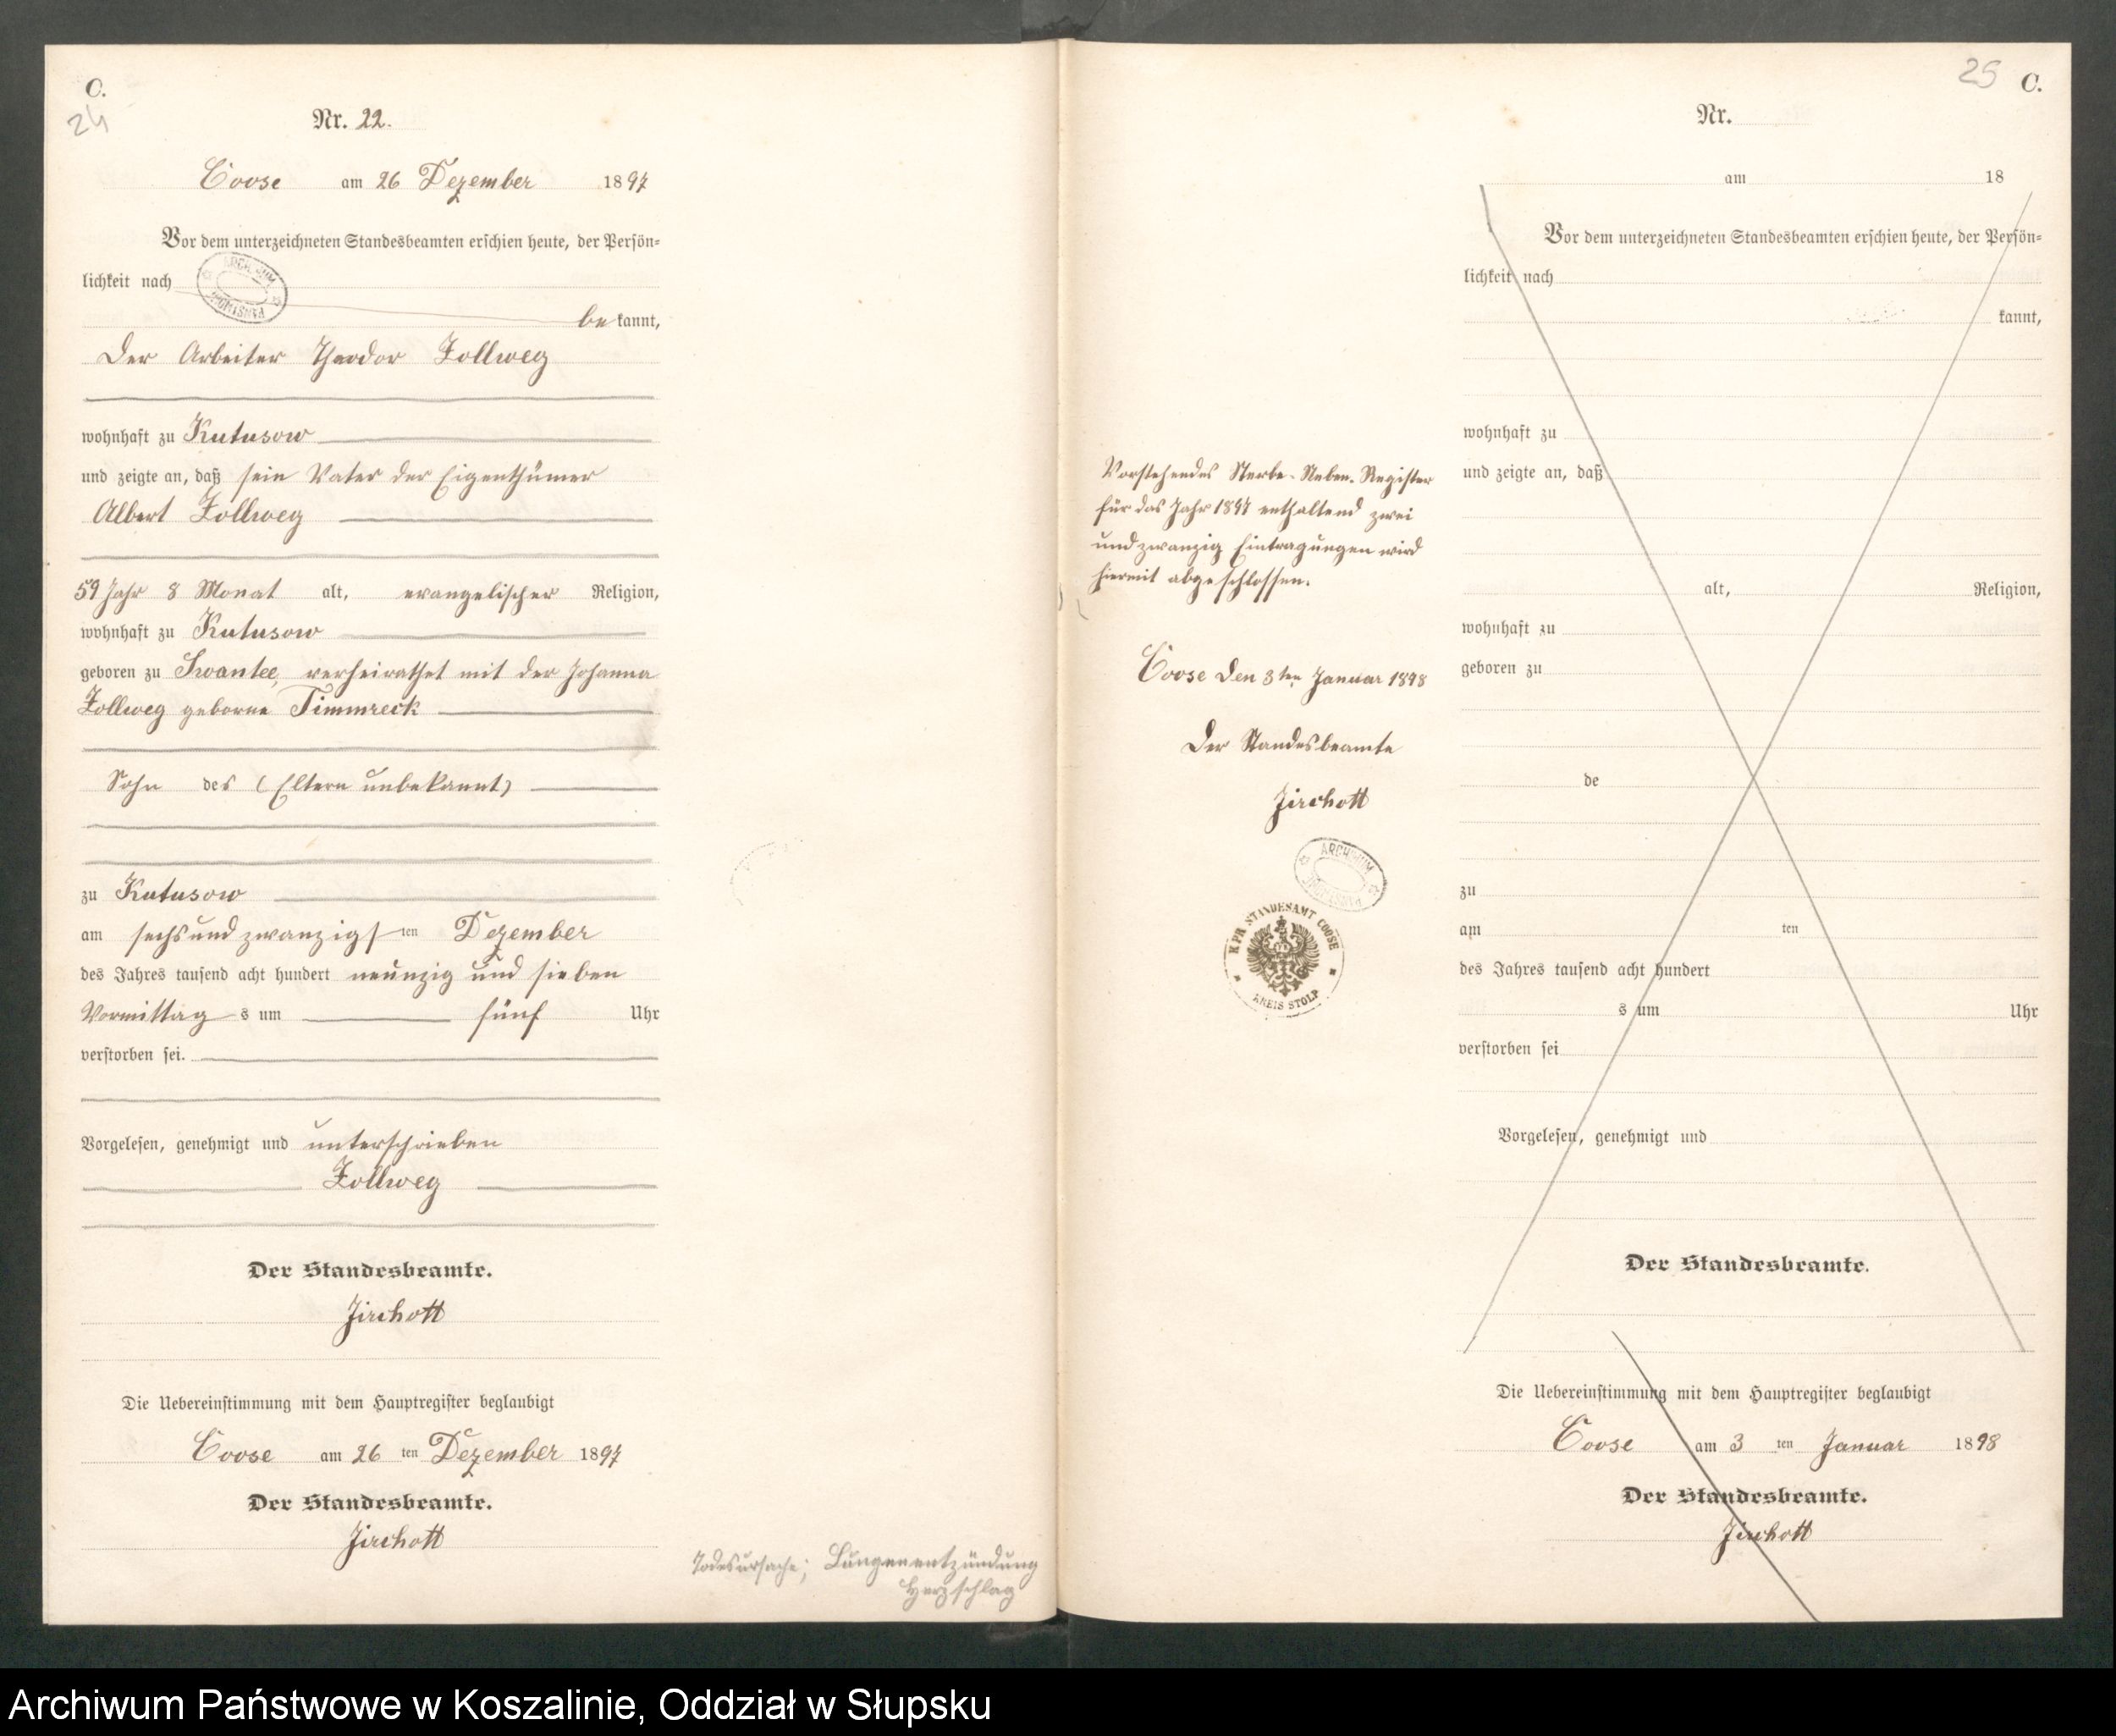 C.
24
Nr. 22.
Coose am 26 Dezember 1897
Vor dem unterzeichneten Standesbeamten erschien heute, der Persön-
lichkeit nach
ARCHIWUM PAŃSTWOWE
be kannt,
Der Arbeiter Theodor Zollweg
wohnhaft zu Kutusow
und zeigte an, daß sein Vater der Eigenthümer
Albert Zollweg
59 Jahr 8 Monat alt, evangelischer Religion,
wohnhaft zu Kutusow
geboren zu Swantee, verheirathet mit der Johanna
Zollweg geborne Timmreck
Sohn des (Eltern unbekannt)
zu Kutusow
am sechsundzwanzigsten Dezember
des Jahres tausend acht hundert neunzig und sieben
Vormittag s um fünf Uhr
verstorben sei.
Vorgelesen, genehmigt und unterschrieben
Zollweg
Der Standesbeamte.
Jirchott
Die Uebereinstimmung mit dem Hauptregister beglaubigt
Coose am 26 ten Dezember 1897
Der Standesbeamte.
Jirchott
Todesursache; Lungenentzündung
Herzschlag
25 C.
Nr.
am 18
Vor dem unterzeichneten Standesbeamten erschien heute, der Persön-
lichkeit nach
kannt,
wohnhaft zu
und zeigte an, daß
alt, Religion,
wohnhaft zu
geboren zu
de
zu
am ten
des Jahres tausend acht hundert
s um Uhr
verstorben sei
Vorgelesen, genehmigt und
Der Standesbeamte.
Die Uebereinstimmung mit dem Hauptregister beglaubigt
Coose am 3 ten Januar 1898
Der Standesbeamte.
Jirchott
Vorstehendes Sterbe-Neben-Register
für das Jahr 1897 enthaltend zwei
und zwanzig Eintragungen wird
hiermit abgeschlossen.
Coose den 3ten Januar 1898
Der Standesbeamte
Jirchott
ARCHIWUM PAŃSTWOWE
KPR STANDESAMT COOSE
KREIS STOLP
Archiwum Państwowe w Koszalinie, Oddział w Słupsku